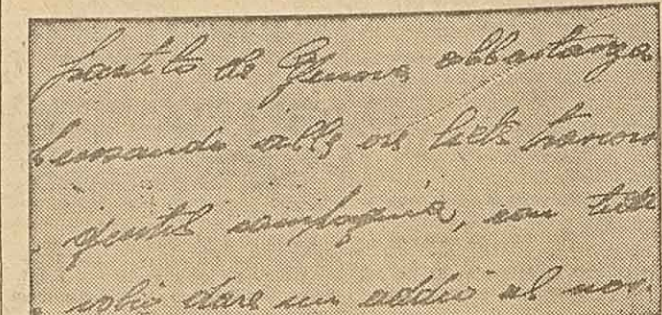 partito da Genova abbastanza
pensando alle ore
gentil compagnia, con
volei dare un addio al